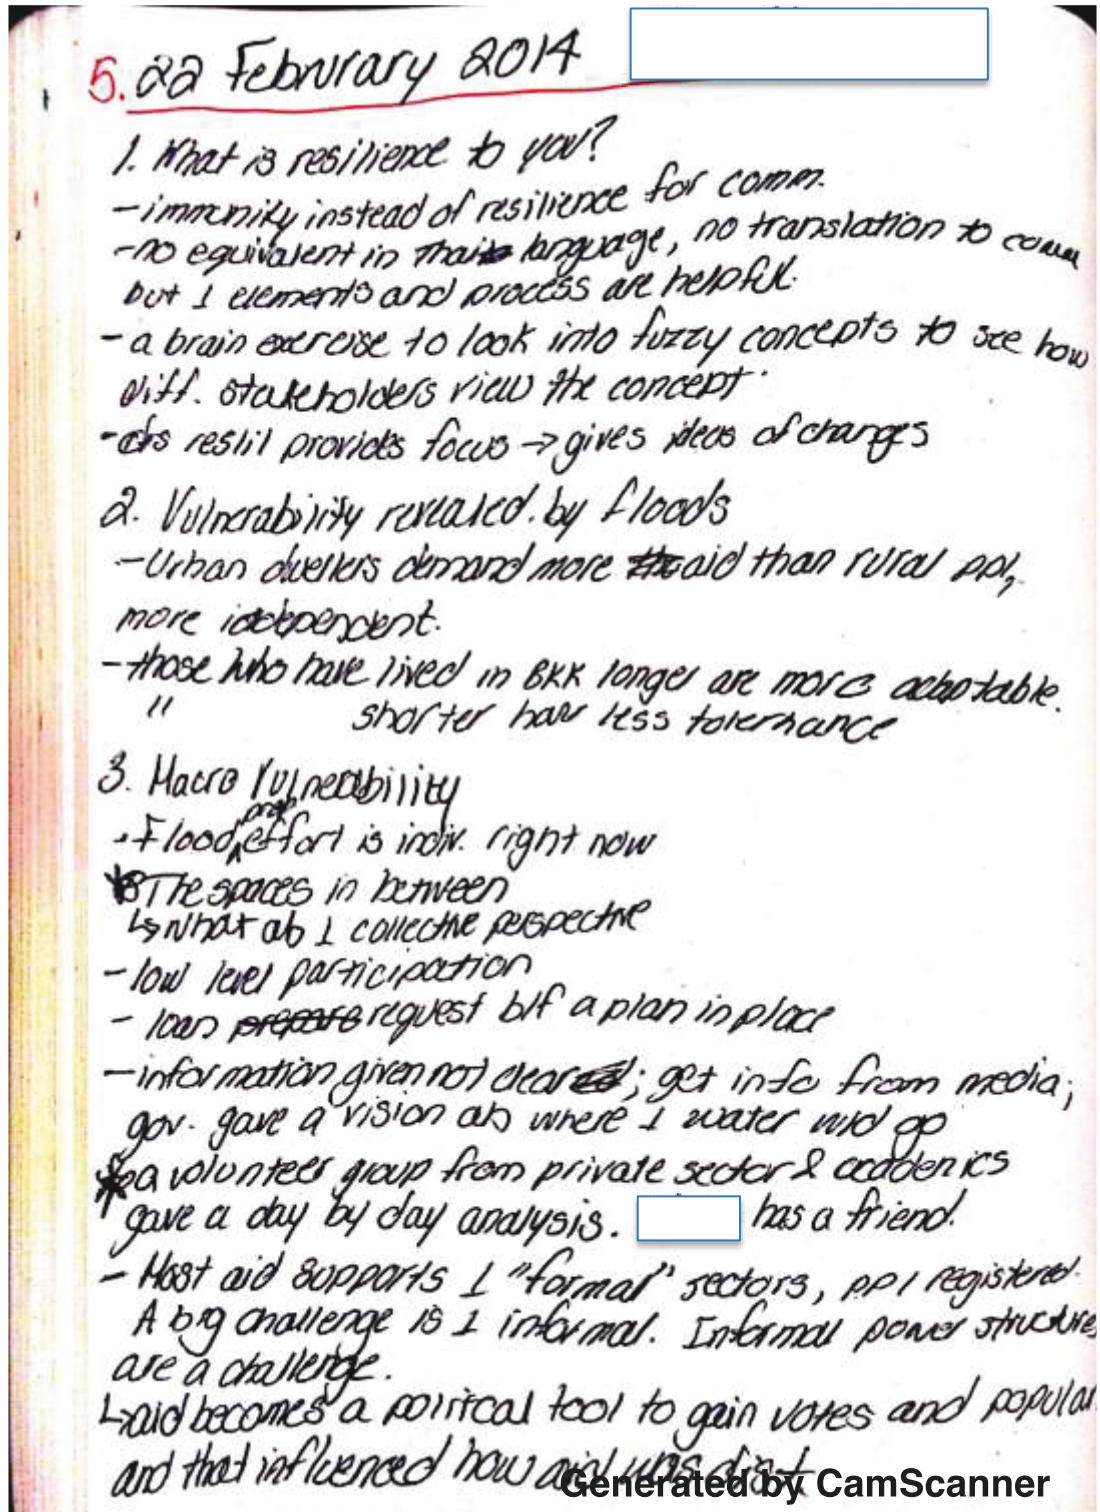 5. 22 Februrary 2014
1. What is resilience to you?
- immunity instead of resilience for comm.
- no equivalent in Thai language, no translation to comm
but 1 elements and process are helpful.
- a brain exercise to look into fuzzy concepts to see how
diff. stakeholders view the concept.
- resili provides focus → gives ideas of changes
2. Vulnerability revealed. by floods
- Urban dwellers demand more aid than rural ppl,
more independent.
- those who have lived in BKK longer are more adaptable.
" shorter have less tolerhance
3. Macro Vulnerability
- Flood effort is indiv. right now
* The spaces in between
↳ What ab 1 collective perspective
- low level participation
- loan request b/f a plan in place
- information given not clear; get info from media;
gov. gave a vision ab where 1 water wld go
* a volunteer group from private sector & academics
gave a day by day analysis. has a friend.
- Most aid supports 1 "formal" sectors, ppl registered.
A big challenge is 1 informal. Informal power structures
are a challenge.
↳ aid becomes a political tool to gain votes and popular
and that influenced how aid was dist
Generated by CamScanner